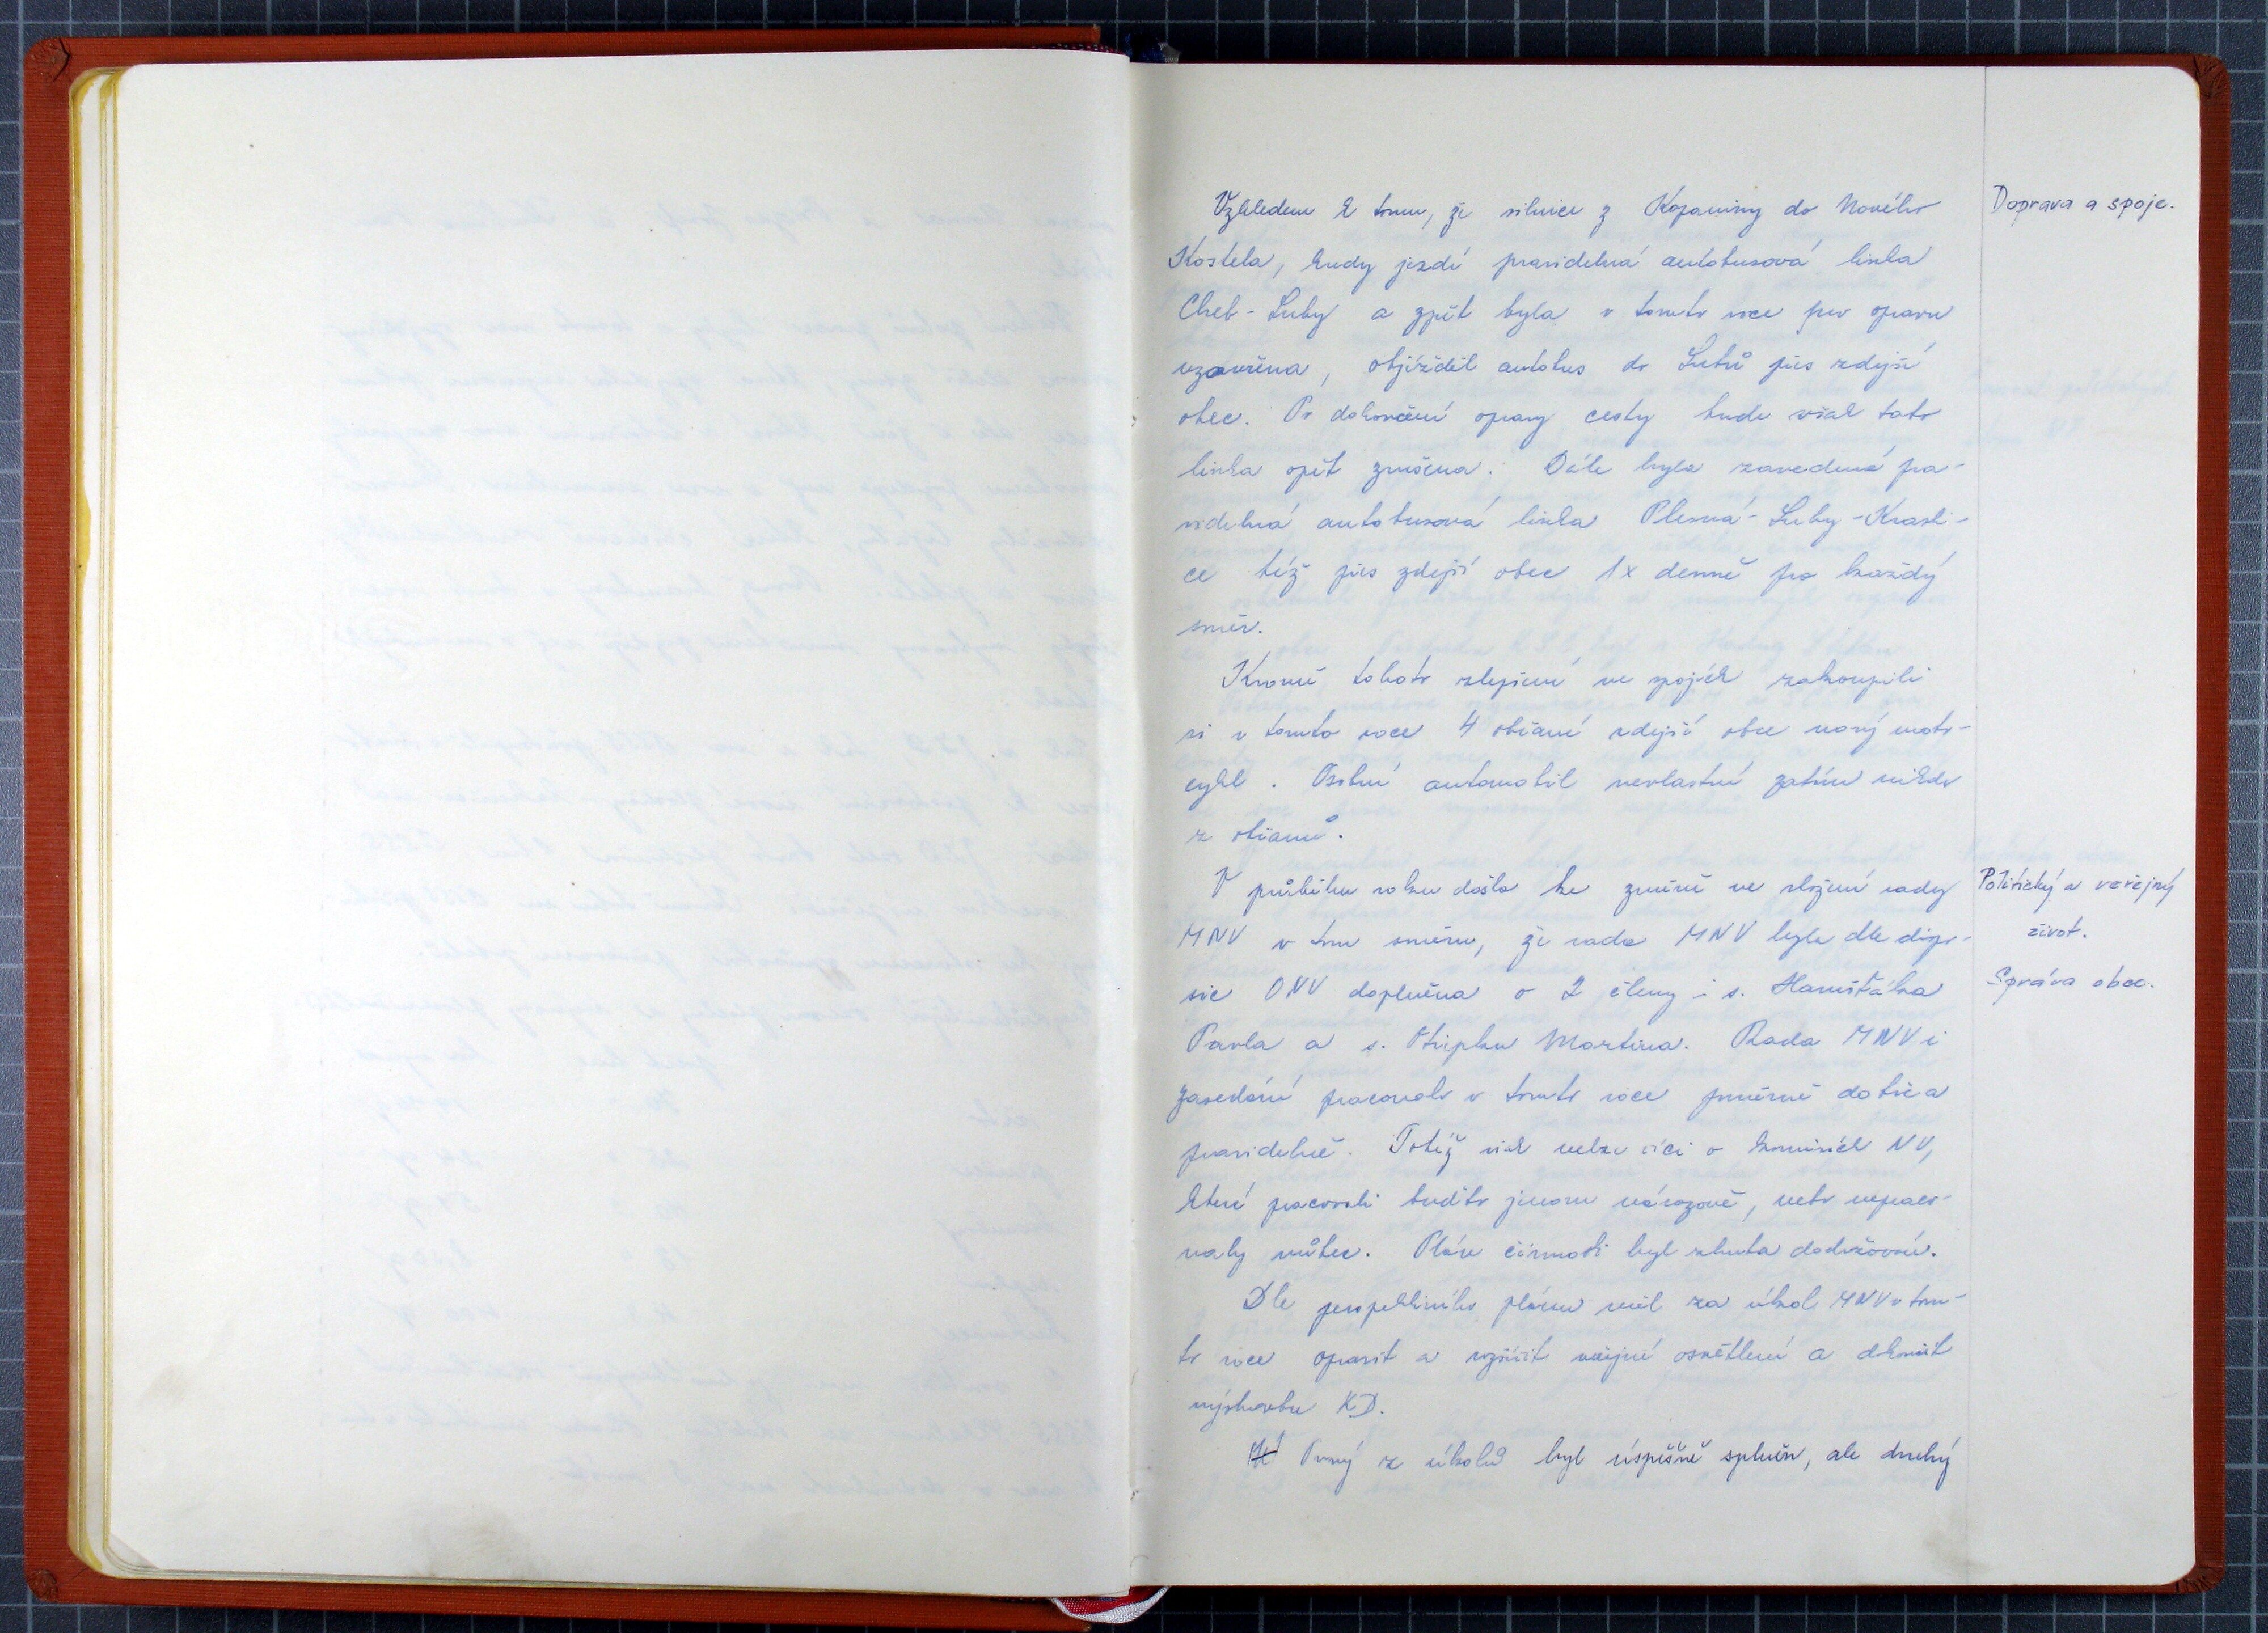 Doprava a spoje.
Vzhledem k tomu, že silnice z Kopaniny do Nového
Kostela, kudy jezdí pravidelná autobusová linka
Cheb - Luby a zpět byla v tomto roce pro opravu
uzavřena, objížděl autobus do Lubů přes zdejší
obec. Po dokončení opravy cesty bude však tato
linka opět zrušena. Dále byla zavedená pra-
videlná autobusová linka Plesná - Luby - Krasli-
ce též přes zdejší obec 1x denně pro každý
směr.
Kromě tohoto zlepšení ve spojích zakoupili
si v tomto roce 4 občané zdejší obce nový moto-
cykl. Osobní automobil nevlastní zatím nikdo
z občanů.
Politický a veřejný
život.
Správa obce.
V průběhu roku došlo ke změně ve složení rady
MNV v tom směru, že rada MNV byla dle dispo-
sic ONV doplněna o 2 členy - s.
Pavla a s. Martina. Rada MNV i
zasedání pracovalo v tomto roce poměrně dobře a
pravidelně. Totéž však nelze říci o komisích NV,
které pracovali buďto jenom nárazově, nebo nepraco-
valy vůbec. Plán činnosti byl zhruba dodržován.
Dle perspektivního plánu měl za úkol MNV v tom-
to roce opravit a rozšířit veřejné osvětlení a dokončit
výstavbu KD.
Prvný z úkolů byl úspěšně splněn, ale druhý